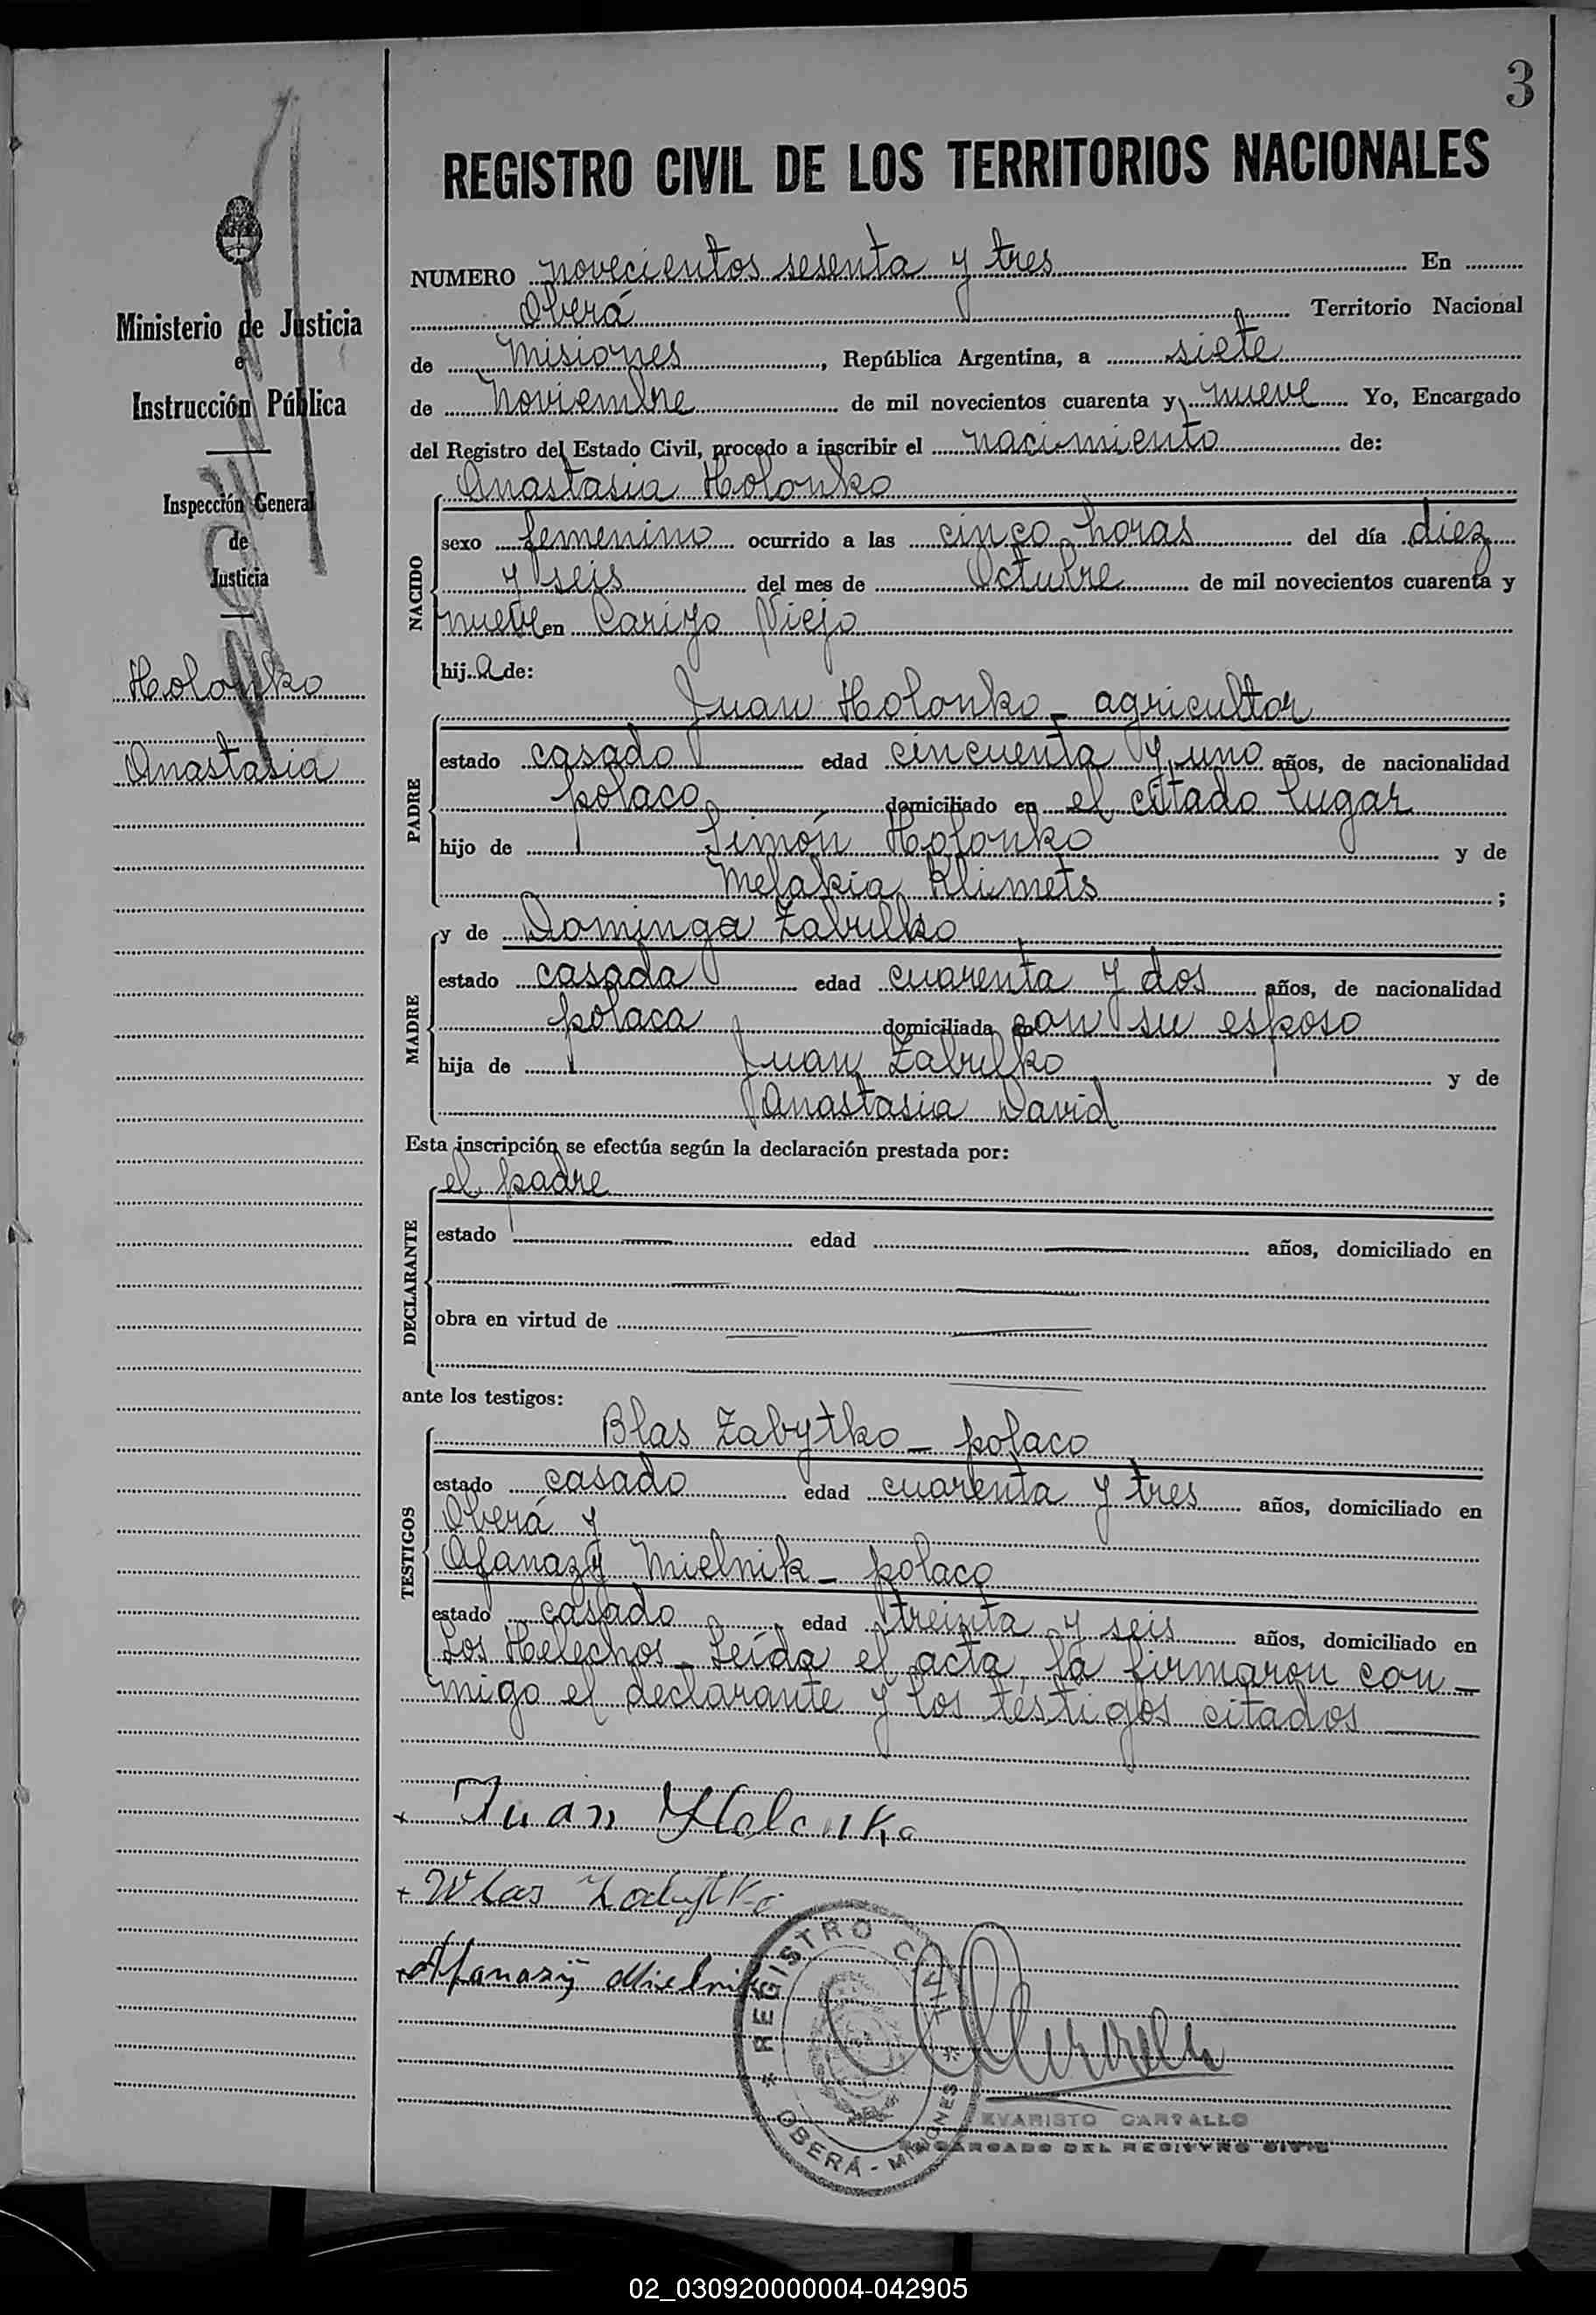 3
REGISTRO CIVIL DE LOS TERRITORIOS NACIONALES
Ministerio de Justicia
e
Instrucción Pública
Inspección General
de
Justicia
Holonko
Anastasia
NUMERO novecientos sesenta y tres En
Oberá Territorio Nacional
de Misiones, República Argentina, a siete
de Noviembre de mil novecientos cuarenta y nueve Yo, Encargado
del Registro del Estado Civil, procedo a inscribir el nacimiento de:
NACIDO
Anastasia Holonko
sexo femenino ocurrido a las cinco horas del día diez
y seis del mes de Octubre de mil novecientos cuarenta y
nueve en Cariyo Viejo
hija de:
PADRE
Juan Holonko - agricultor
estado casado edad cincuenta y uno años, de nacionalidad
polaco domiciliado en el citado lugar
hijo de Simón Holonko y de
Melakia Klimets;
MADRE
y de Dominga Zabulko
estado casada edad cuarenta y dos años, de nacionalidad
polaca domiciliada con su esposo
hija de Juan Zabulko y de
Anastasia David
Esta inscripción se efectúa según la declaración prestada por:
DECLARANTE
el padre
estado edad años, domiciliado en
obra en virtud de
ante los testigos:
TESTIGOS
Blas Zabytko - polaco
estado casado edad cuarenta y tres años, domiciliado en
Oberá y
Afanazy Mielnik - polaco
estado casado edad treinta y seis años, domiciliado en
Los Helechos - Leída el acta, la firmaron con-
migo el declarante y los testigos citados
Juan Holonko
Wlas Zabytko
Afanazij Mielnik
REGISTRO CIVIL
OBERÁ - MISIONES
EVARISTO CARVALLO
ENCARGADO DEL REGISTRO CIVIL
02_030920000004-042905